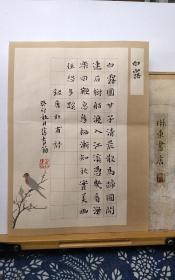 白露
白露團甘子清晨散馬蹄圃開
連石樹船渡入江溪憑几看魚
樂回鞭急鳥棲漸知秋實美幽
徑恐多蹊
録唐杜甫詩
書店